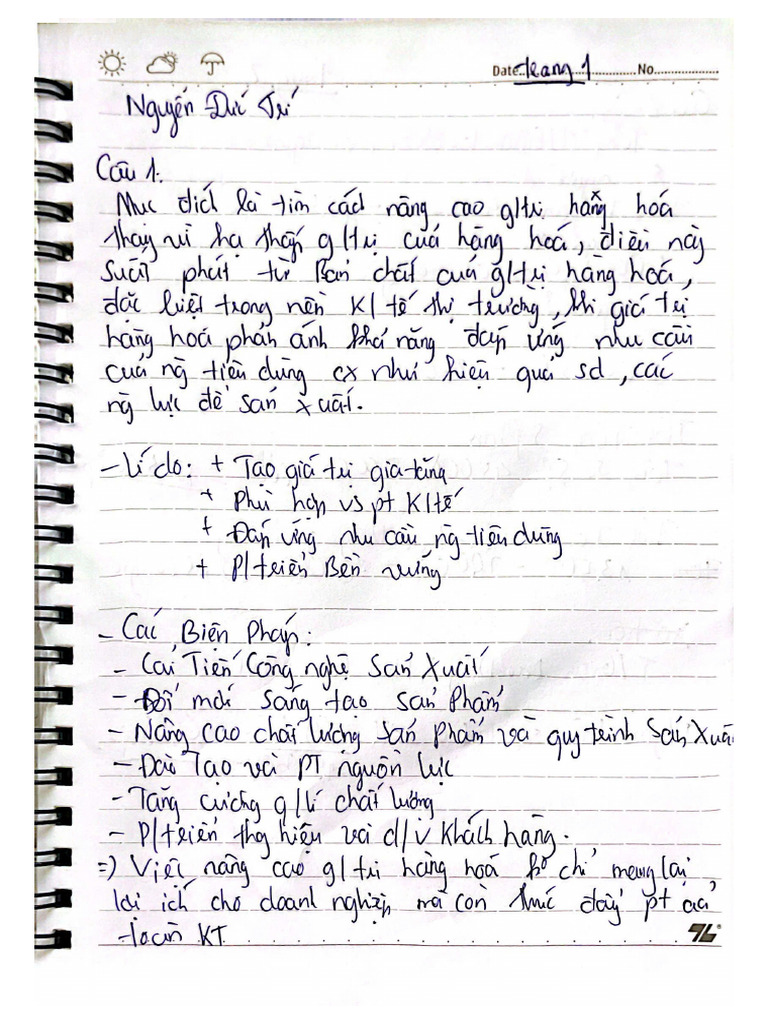 Date..trang 1.............No..................
Nguyễn Đức Trí
Câu 1.
Mục đích là tìm cách nâng cao g/trị hàng hoá
thay vì hạ thấp g/trị của hàng hoá, điều này
suất phát từ Bản chất của g/trị hàng hoá,
đặc biệt trong nền K/tế thị trường, khi giá trị
hàng hoá phản ánh khả năng đáp ứng nhu cầu
của ng tiêu dùng cx như hiệu quả sd, các
ng lực để sản xuất.
- Lí do: + Tạo giá trị gia tăng
+ Phù hợp vs pt K/tế
+ Đáp ứng nhu cầu ng tiêu dùng
+ P/triển Bền vững
- Các Biện Pháp:
- Cải Tiến Công nghệ Sản Xuất
- Đổi mới sáng tạo sản Phẩm
- Nâng cao chất lượng sản phẩm và quy trình Sản Xuấ
- Đào Tạo và PT nguồn lực
- Tăng cường q/lí chất lượng
- P/triển thg hiệu và d/v Khách hàng.
=) Việc nâng cao g/trị hàng hoá ko chỉ mang lại
lợi ích cho doanh nghiệp mà còn thúc đẩy pt của
toàn KT